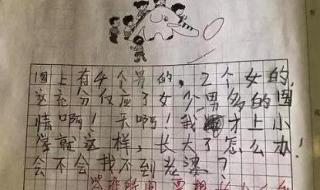 图上有4个男的，2个女的，
这充分反应了女少男多的国
情啊！天啊！我才上小
学就这样，长大了怎么办！
会不会找不到老婆？